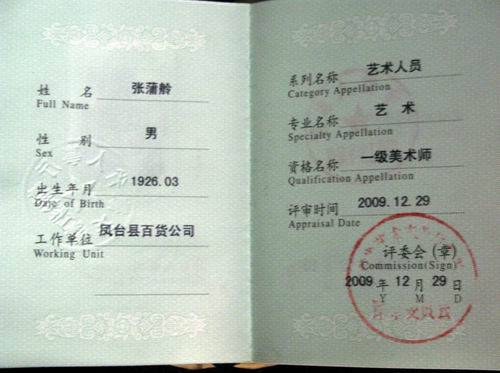 姓 名 张蒲舲
Full Name
性 别 男
Sex
出生年月 1926.03
Date of Birth
工作单位 凤台县百货公司
Working Unit
系列名称 艺术人员
Category Appellation
专业名称 艺 术
Specialty Appellation
资格名称 一级美术师
Qualification Appellation
评审时间 2009.12.29
Appraisal Date
评委会(章)
Commission(Sign)
2009 年 12 月 29 日
Y M D